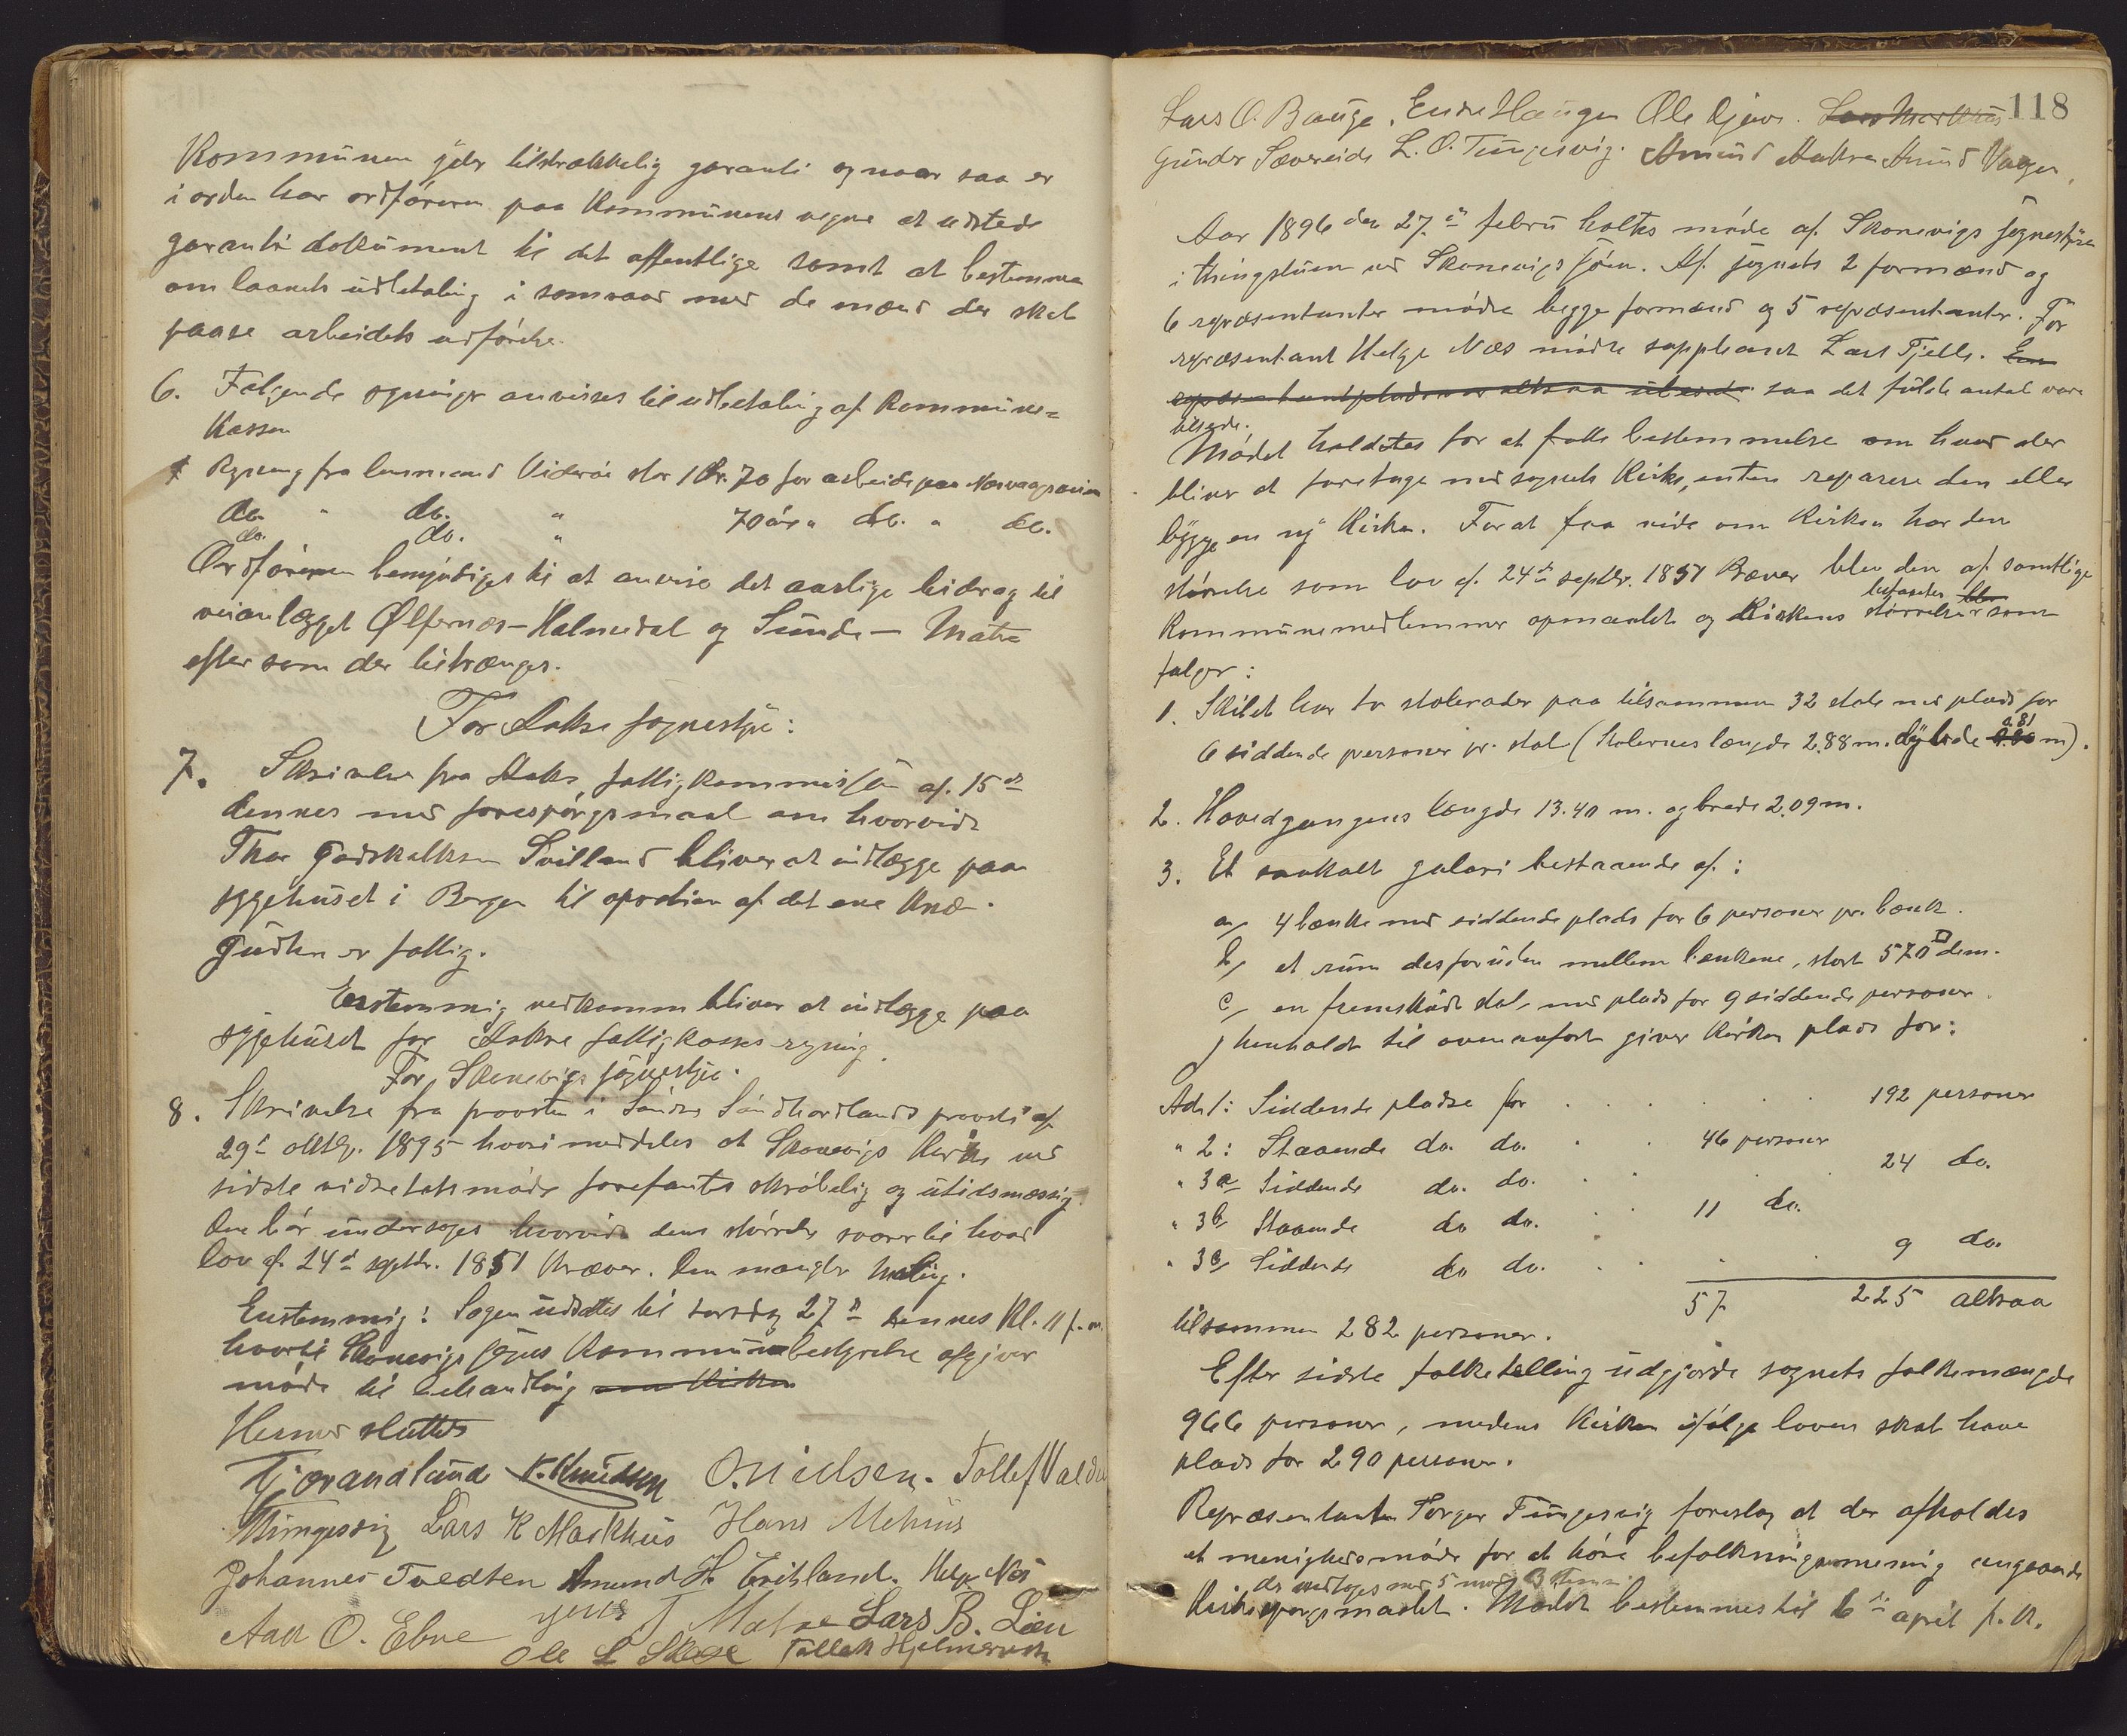 Kommunen yder tilstrækkelig garanti og naar saa er
i orden har ordføreren paa Kommunens vegne at udstede
garanti dokument til det offentlige samt at bestemme
om laanets udbetaling i samraad med de mænd der skal
paase arbeidets udførelse.
6. Følgende regninger anvises til udbetaling af Kommune=
Kassen
Regning fra lensmand Viderøe stor 1 Kr. 70 for arbeide paa
do. " do. " 70 øre " do. " do.
do. do. "
Ordføreren bemyndiges til at anvise det aarlige bidrag til
veianlægget Ølfernæs - Halmedal og Sunde - Matre
efter som der tiltrænges.
For Aakre sognestyre:
7. Skrivelse fra Aakre fattigkommission af 15de
dennes med forespørgsmaal om hvorvidt
Thor Godskalksen Svilland bliver at indlægge paa
sygehuset i Bergen til operation af det ene Knæ.
Gutten er fattig.
Enstemmig vedkommende bliver at indlægge paa
sygehuset for Aakre fattigkasses regning.
For Skonevigs sognestyre.
8. Skrivelse fra provsten i Søndre Søndhordlands provsti af
29de oktbr. 1895 hvori meddeles at Skonevigs Kirke ved
sidste møde forefantes skrøbelig og utidsmæssig.
Den bør undersøges hvorvidt dens størrelse svarer til hvad
lov af 24de septbr. 1851 kræver. Den mangler maling.
Enstemmig: Sagen udsættes til torsdag 27de dennes Kl. 11 f.m.
hvortil Skonevigs sogns Kommunebestyrelse afgiver
møde til behandling om Kirken
Hermed sluttet
Tjorandlund K. Knudsen O. Nielsen. Tollef Valde
Thungesvig Lars K Markhus Hans Mehus
Johannes Tvedten Amund H. Eritsland. Helge Næs
Aad O. Ebne Matre Lars B. Lien
Ole L Tollak Hjelmervik
118
Lars O. Bauge. Endre Haugen Ole Kjerv. Lars Markhus
Gunder Sævereide L. O. Tungesvig. Amund Aakra Amund Vaagen
Aar 1896 den 27de febru holtes møde af Skonevigs sognestyre
i thingstuen ved Skonevigs sjøen. Af sognets 2 formænd og
6 repræsentanter mødte begge formænd og 5 repræsentanter. For
repræsentant Helge Næs mødte suppleant Lars Fjelle. En
repræsentantplads var altsaa ubesat. saa det fulde antal var
tilstede.
Mødet holdtes for at fatte bestemmelse om hvad der
bliver at foretage med sognets Kirke, enten reparere den eller
bygge en ny Kirke. For at faa vide om Kirken har den
størrelse som lov af 24de septbr. 1851 kræver blev den af samtlige
Kommunemedlemmer opmaalt og Kirkens størrelse befandtes blev som
følger:
1. Skibet har to stolerader paa tilsammen 32 stole med plads for
6 siddende personer pr. stol (Stolernes længde 2.88 m. dybde 0.81 m).
2. Hovedgangens længde 13.40 m. og brede 2.09 m.
3. Et saakalt galeri bestaaende af:
a, 4 bænke med siddende plads for 6 personer pr. bænk.
b, et rum desforuden mellem bænkene, stort 570 □ dcm.
c, en fremskudt stol med plads for 9 siddende personer.
I henholdt til ovenanførte giver Kirken plads for:
Ads 1: Siddende pladse for . . . . 192 personer
" 2: Staaende do. do. . . 46 personer
" 3a, Siddende do. do. . . . 24 do.
" 3b, Staaende do do. . . 11 do.
" 3c, Siddende do do. . . . 9 do.
57 225 altsaa
tilsammen 282 personer.
Efter sidste folketælling udgjorde sognets folkemængde
966 personer, medens Kirken ifølge loven skal have
plads for 290 personer.
Repræsentanten Torger Tungesvig foreslog at der afholdes
et menighedsmøde for at høre befolkningens mening angaaende
der vedtoges med 5 mod 3 stemmer.
Kirkespørgsmaalet. Mødet bestemmes til 6te april f. K.